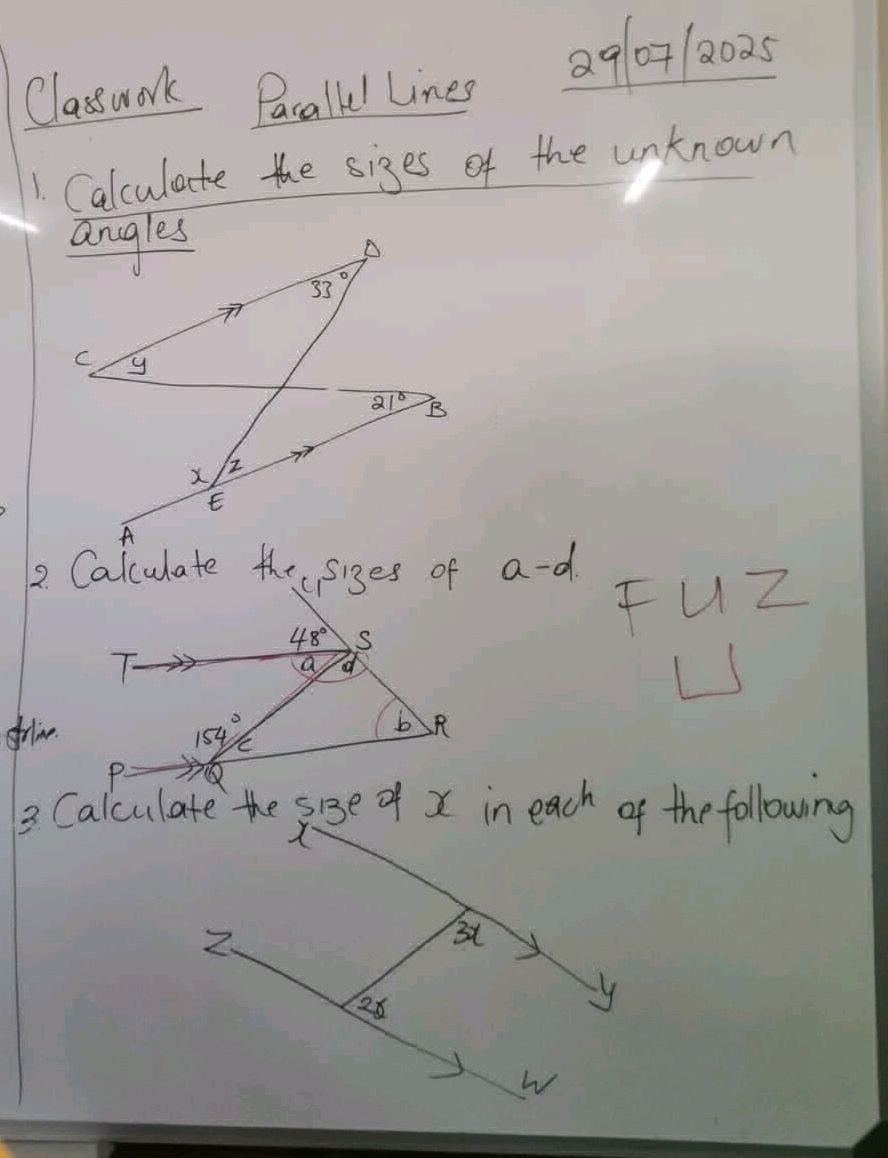 Classwork Parallel Lines 29/07/2025
1. Calculate the sizes of the unknown
angles
D
33°
C
y
21°
B
x z
E
A
2. Calculate the sizes of a-d.
F U Z
U
48° S
T a d
b R
154° c
P Q
3. Calculate the size of x in each of the following
x
3x
Z
y
2x
W